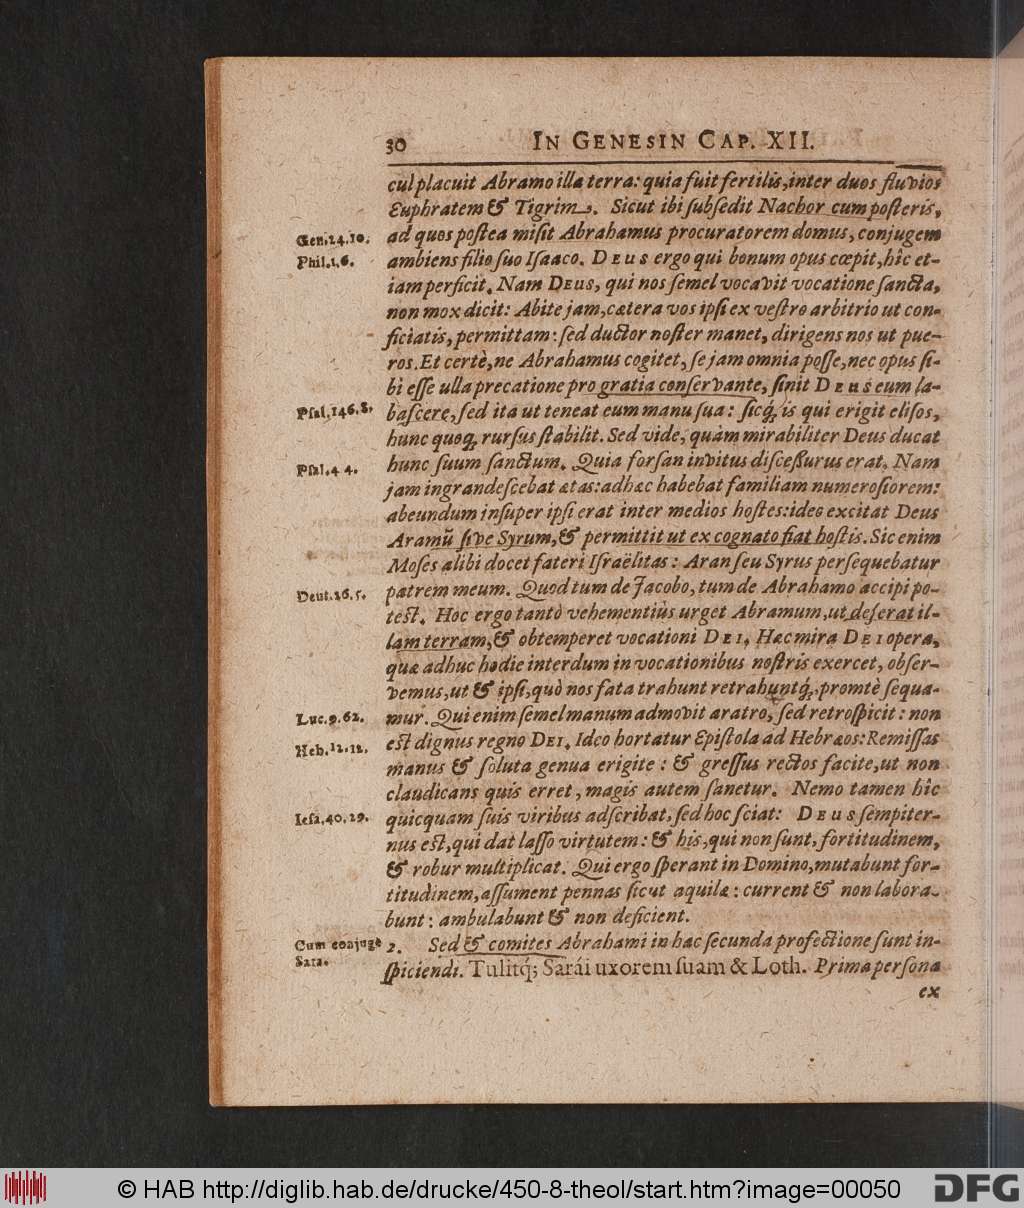 30 IN GENESIN CAP. XII.
cul placuit Abramo illa terra: quia fuit fertilis, inter duos fluvios
Euphratem & Tigrim. Sicut ibi subsedit Nachor cum posteris,
Gen. 24. 10. ad quos postea misit Abrahamus procuratorem domus, conjugem
Phil. 1. 6. ambiens filio suo Isaaco. DEUS ergo qui bonum opus cœpit, hîc et-
iam perficit. Nam DEUS, qui nos semel vocavit vocatione sancta,
non mox dicit: Abite jam, cætera vos ipsi ex vestro arbitrio ut con-
ficiatis, permittam: sed ductor noster manet, dirigens nos ut pue-
ros. Et certè, ne Abrahamus cogitet, se jam omnia posse, nec opus si-
bi esse ulla precatione pro gratia conservante, sinit DEUS eum la-
Psal. 146. 8. bascere, sed ita ut teneat eum manu sua: sicq́; is qui erigit elisos,
hunc quoq; rursus stabilit. Sed vide, quàm mirabiliter Deus ducat
Psal. 4 4. hunc suum sanctum. Quia forsan invitus discessurus erat. Nam
jam ingrandescebat ætas: adhæc habebat familiam numerosiorem:
abeundum insuper ipsi erat inter medios hostes: ideo excitat Deus
Aramũ sive Syrum, & permittit ut ex cognato fiat hostis. Sic enim
Moses alibi docet fateri Israëlitas: Aran seu Syrus persequebatur
Deut. 26. 5. patrem meum. Quod tum de Jacobo, tum de Abrahamo accipi po-
test. Hoc ergo tantò vehementiùs urget Abramum, ut deserat il-
lam terram, & obtemperet vocationi DEI. Hæc mira DEI opera,
quæ adhuc hodie interdum in vocationibus nostris exercet, obser-
vemus, ut & ipsi, quò nos fata trahunt retrahuntq́;, promtè sequa-
Luc. 9. 62. mur. Qui enim semel manum admovit aratro, sed retrospicit: non
Heb. 12. 12. est dignus regno DEI. Ideo hortatur Epistola ad Hebræos: Remissas
manus & soluta genua erigite: & gressus rectos facite, ut non
claudicans quis erret, magis autem sanetur. Nemo tamen hîc
Iesa. 40. 29. quicquam suis viribus adscribat, sed hoc sciat: DEUS sempiter-
nus est, qui dat lasso virtutem: & his, qui non sunt, fortitudinem,
& robur multiplicat. Qui ergo sperant in Domino, mutabunt for-
titudinem, assument pennas sicut aquilæ: current & non labora-
bunt: ambulabunt & non deficient.
Cum conjuge 2. Sed & comites Abrahami in hac secunda profectione sunt in-
Sara. spiciendi. Tulitq́; Sarái uxorem suam & Loth. Prima persona
ex
© HAB http://diglib.hab.de/drucke/450-8-theol/start.htm?image=00050
DFG